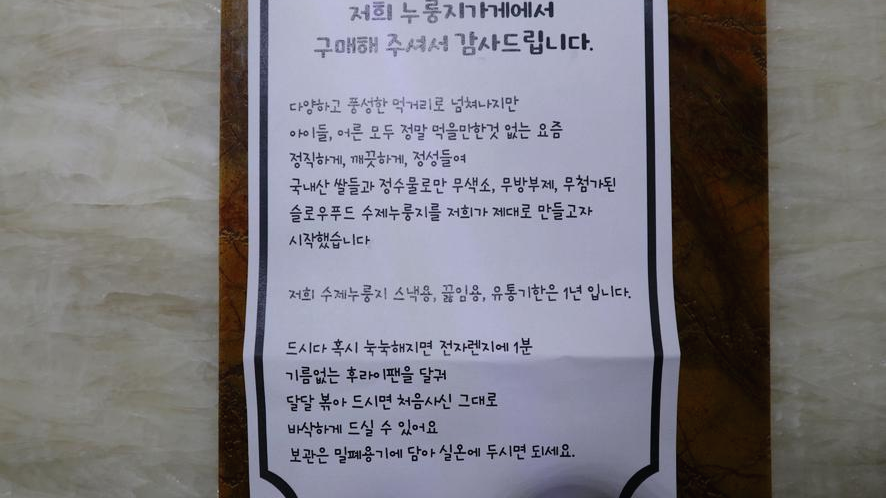 저희 누룽지가게에서
구매해 주셔서 감사드립니다.
다양하고 풍성한 먹거리로 넘쳐나지만
아이들, 어른 모두 정말 먹을만한것 없는 요즘
정직하게, 깨끗하게, 정성들여
국내산 쌀들과 정수물로만 무색소, 무방부제, 무첨가된
슬로우푸드 수제누룽지를 저희가 제대로 만들고자
시작했습니다
저희 수제누룽지 스낵용, 끓임용, 유통기한은 1년 입니다.
드시다 혹시 눅눅해지면 전자렌지에 1분
기름없는 후라이팬을 달궈
달달 볶아 드시면 처음사신 그대로
바삭하게 드실 수 있어요
보관은 밀폐용기에 담아 실온에 두시면 되세요.